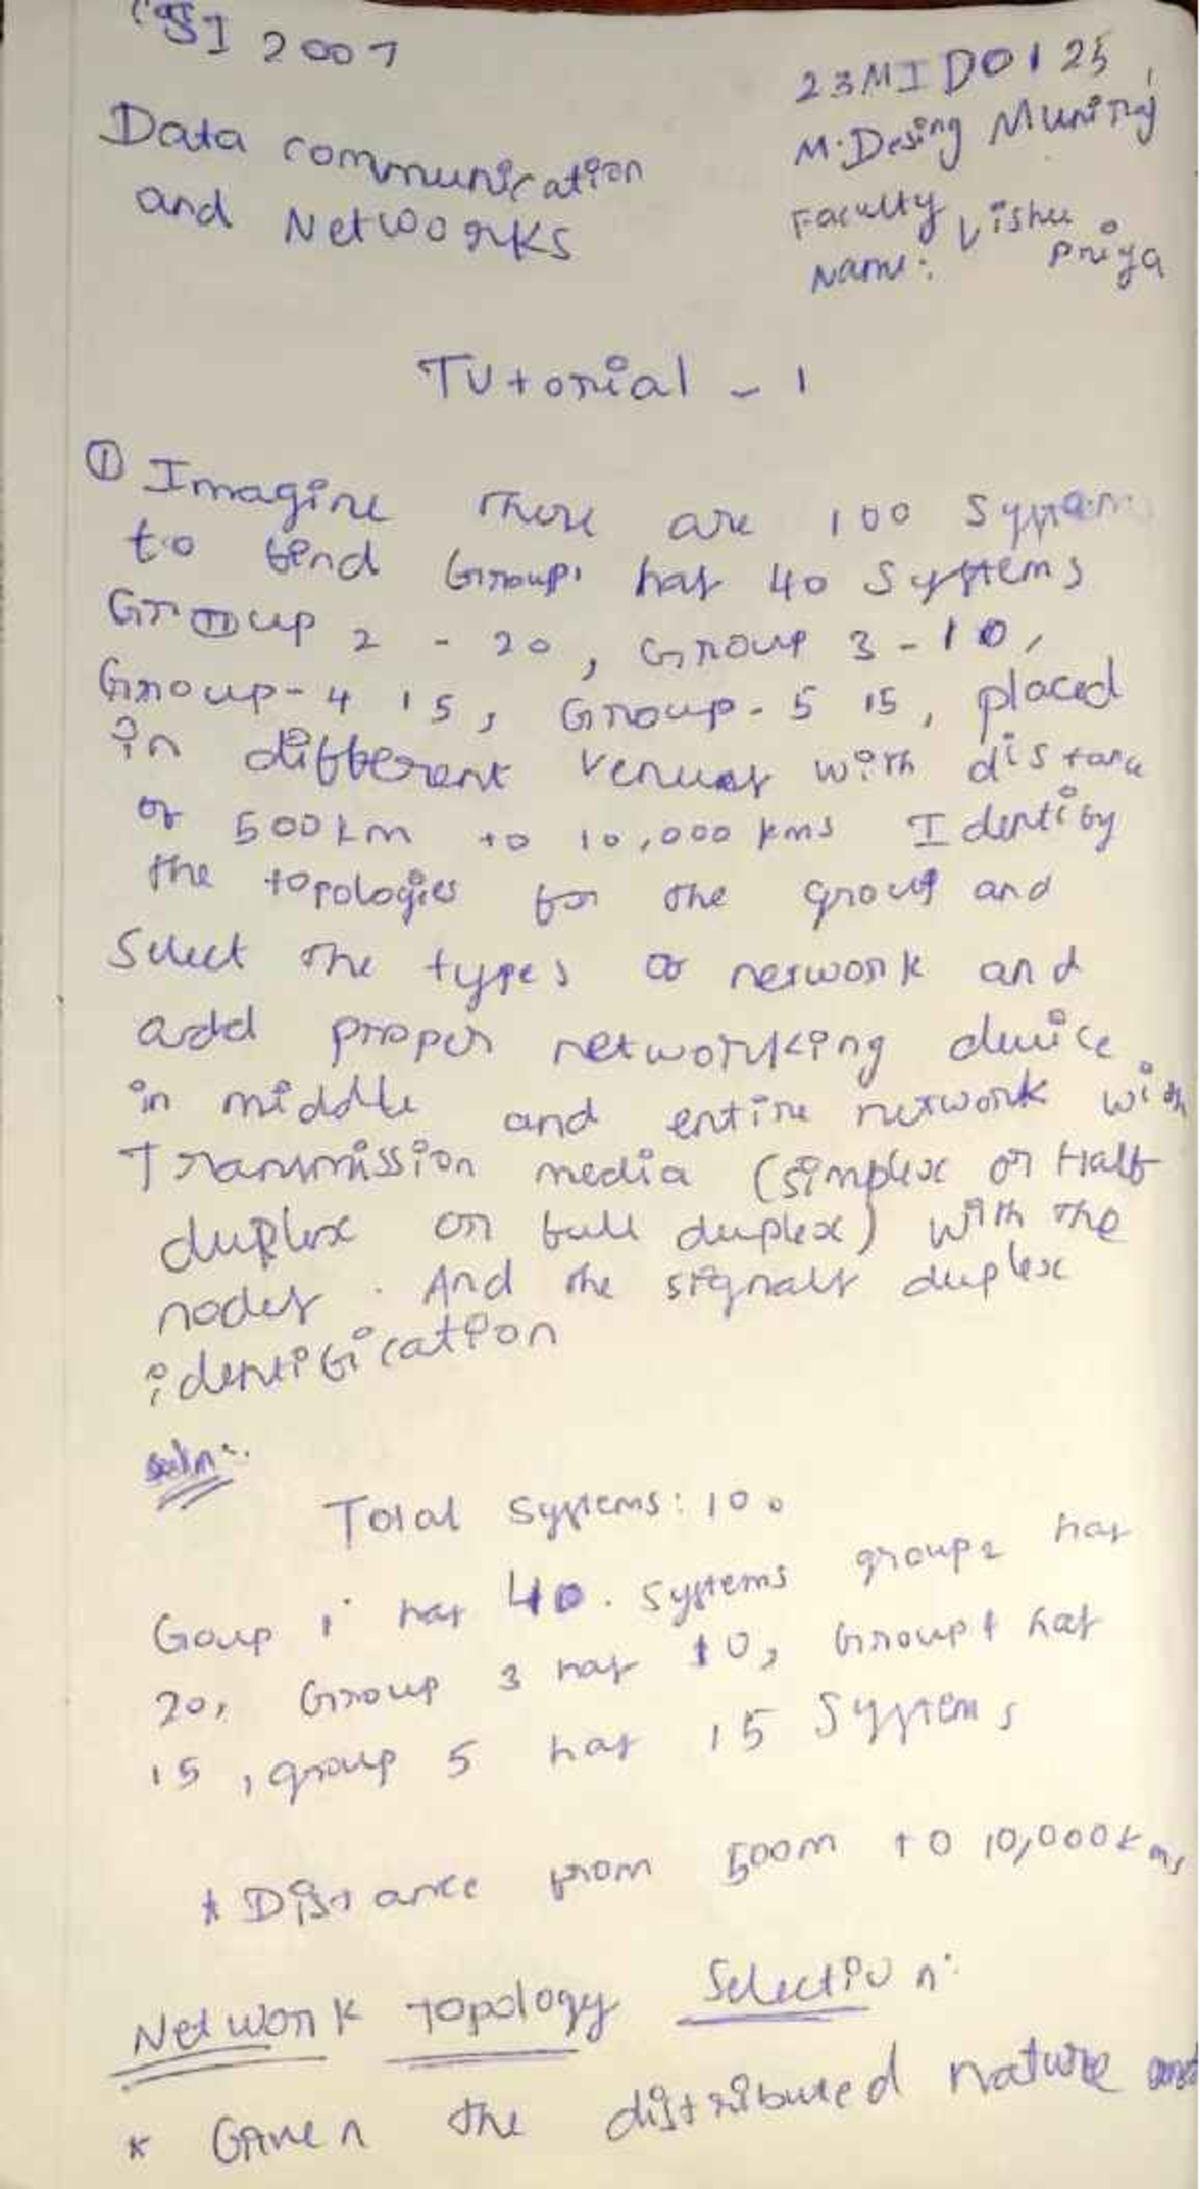 CSI 2007
23MID0125
Data communication
and Networks
M. Desing Muniraj
Faculty Vishu
Name: Priya
Tutorial - 1
① Imagine there are 100 Systems
to find Group 1 has 40 Systems
Group 2 - 20, Group 3 - 10,
Group - 4 15, Group - 5 15, placed
in different venues with distance
of 500km to 10,000 kms Identify
the topologies for the group and
Select the types of network and
add proper networking device
in middle and entire network with
Transmission media (simplex or Half
duplex or full duplex) with the
nodes. And the signals duplex
identification
Soln:-
Total Systems: 100
Goup 1 has 40. Systems group 2 has
20, Group 3 has 10, Group 4 has
15, group 5 has 15 Systems
* Distance from 500m to 10,000kms
Network Topology Selection:
* Given the distributed nature and